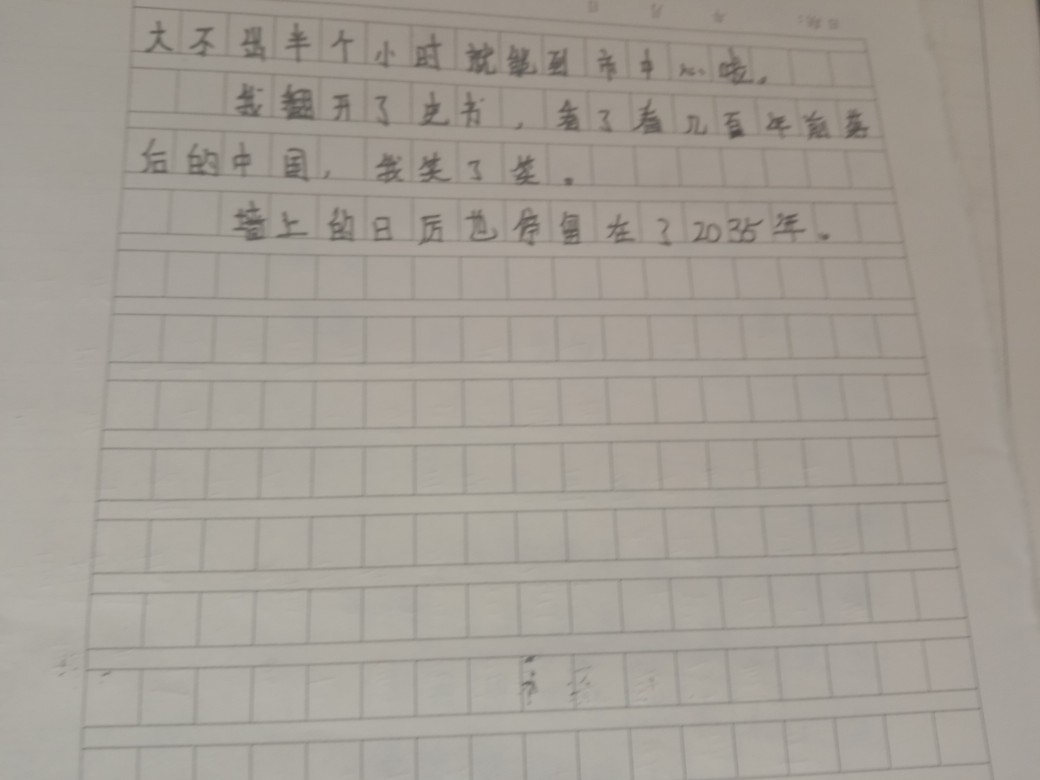 大不出半个小时就能到市中心啦。
我翻开了史书，看了看几百年前落
后的中国，我笑了笑。
墙上的日历也停留在了2035年。